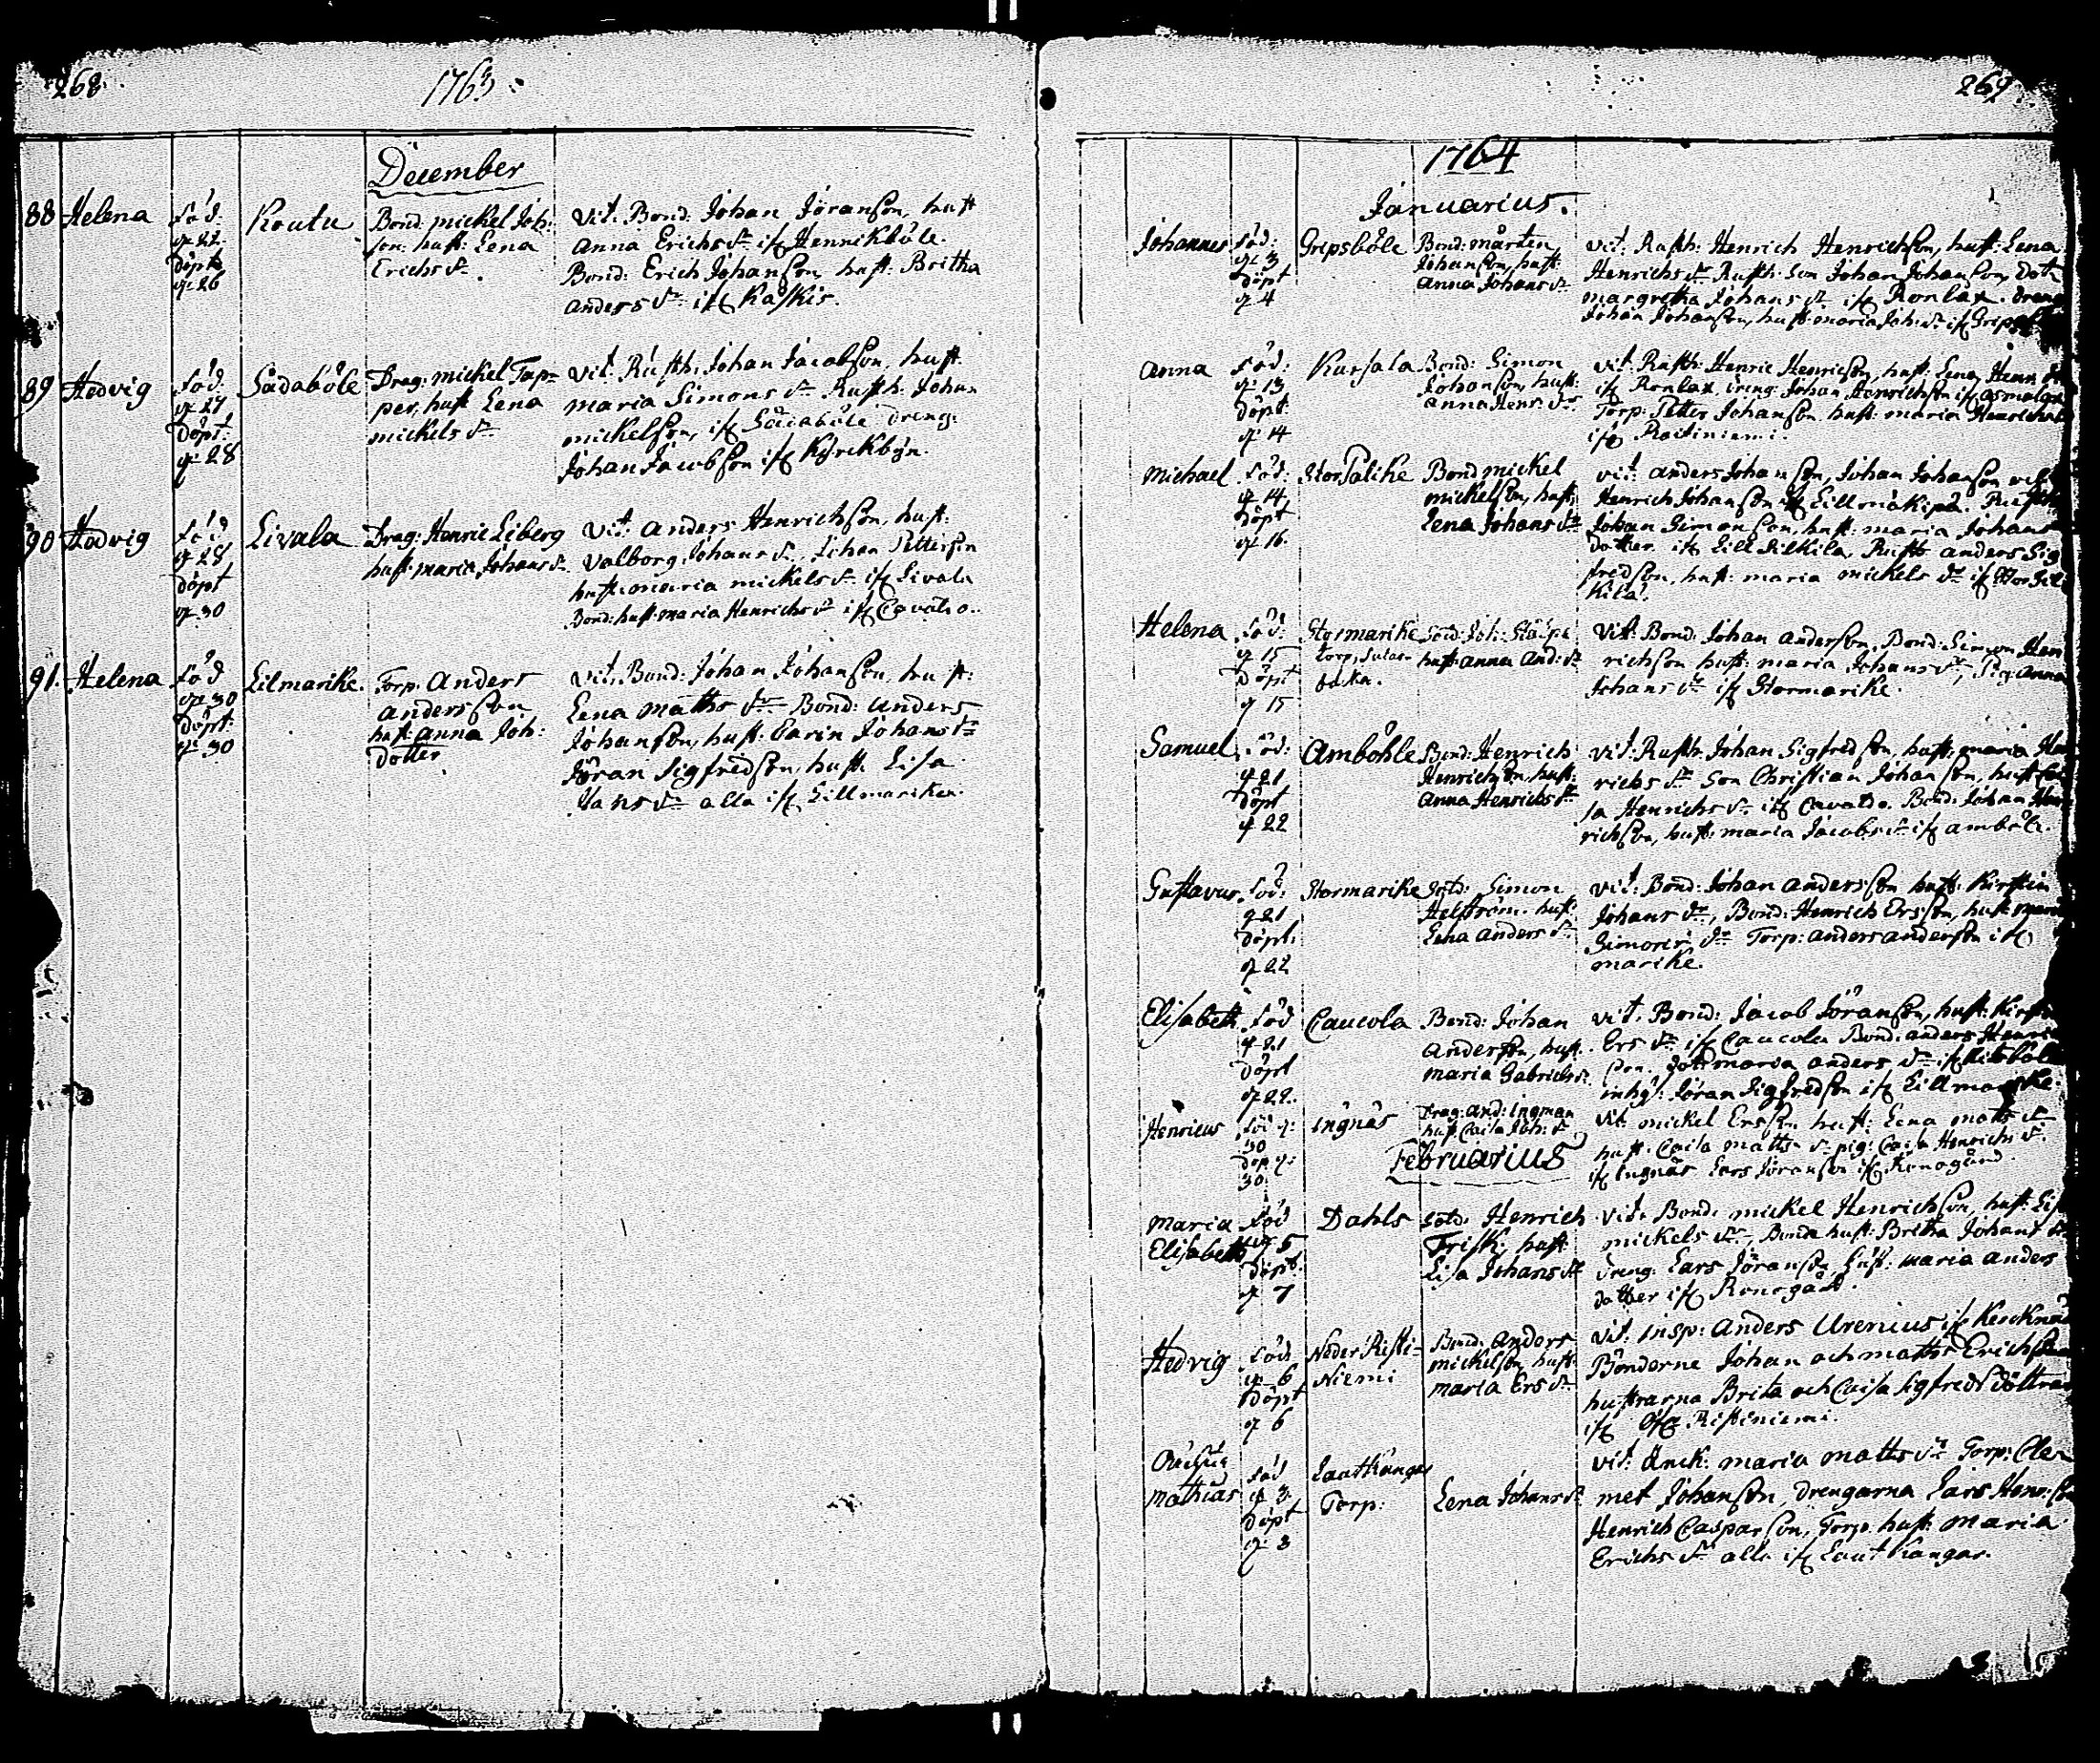 268.
1763.
December
88 Helena
Föd: d. 22. döpt d. 26
Koutu
Bond: mickel Joh:
son: hust: Lena
Erichs dr.
Vit. Bond: Johan Jöranson, hust
Anna Erichs dr if Henrikböle.
Bond: Erich Johanson, hust: Britha
anders dr if Kaskis.
89 Hedvig
Föd: d. 27 Döpt: d. 28
Sådaböle
Drag: mickel Tap=
per, hust Lena
mickels dr
Vit. Rusth: Johan Jacobson, hust
maria Simons dr Rusth: Johan
mickelson, if Sådaböle dreng:
Johan Jacobson if Kyrckbyn.
90 Hedvig
Föd d. 28 döpt d. 30
Livala
Drag: Henric Liberg
hust: maria Johans dr.
Vit: Anders Henrichson, hust:
Valborg Johans dr, Johan Petterson
hust: maria mickels dr if Livala
Bond: hust: maria Henrichs dr if Cavalto.
91. Helena
Föd d. 30 Döpt: d. 30
Lilmarike.
Torp. Anders
Andersson
hust: Anna Joh:
dotter
Vit. Bond: Johan Johanson, hust:
Lena Matts dr Bond: Anders
Johanson, hust: Carin Johans dr
Jöran Sigfredson, hust: Lisa
Hans dr alla if Lillmarike.
269.
1764
Januarius.
Johannes
Föd: d. 3 Döpt d. 4
Gripsböle
Bond: mårten
Johanson, hust:
Anna Johans dr
Vit: Rusth: Henrich Henrichson, hust: Lena
Henrichs dr Rusth: son Johan Johanson, Dot
margretha Johans dr if Ronlax. Dreng
Johan Johanson, hust: maria Joh: dr if Grips
Anna
Föd: d. 13 Döpt: d. 14
Kursala
Bond: Simon
Johanson, hust:
Anna Henr: dr
Vit: Rusth: Henric Henricson, hust: Lena Henr
if Ronlax. dreng: Johan Henrichson if
Torp: Petter Johanson, hust: maria Henrichs
if
Michael
Föd: d. 14 Döpt d. 16.
Bond mickel
mickelson, hust:
Lena Johans dr
Vit: Anders Johanson, Johan Johanson
Henrich Johanson if Rusth
Johan Simonson, hust: maria Johans
dotter if Rusth: Anders Sig
fredson, hust: maria mickels dr if Stor
kila.
Helena
Föd: d. 15 Döpt d. 15
Stormarike
torp
Sold: Joh: Stålpe
hust: Anna And: dr
Vit: Bond: Johan Anderson, Bond: Simon Hen
richson hust: maria Johans dr, Pig: Anna
Johans dr if Stormarike.
Samuel
Föd: d. 21 Döpt d. 22
Amböhle
Bond: Henrich
Henrichson, hust:
Anna Henrichs dr
Vit: Rusth: Johan Sigfredson, hust: maria Hen
richs dr son Christian Johanson, hust:
sa Henrichs dr if Cavalto. Bond: Johan Hen
richson, hust: maria Jacobs dr if Amböle.
Gustavus
Föd: d. 21 Döpt. d. 22
Stormarike
Sold: Simon
Helström. hust:
Lena Anders dr
Vit: Bond: Johan Andersson hust: Kirstin
Johans dr, Bond: Henrich Ersson, hust: maria
Simons dr Torp: Anders Anderson if
marike.
Elisabeth
Föd d. 21 Döpt d. 22.
Caucola
Bond: Johan
Anderson, hust:
maria Gabriels dr
Vit. Bond: Jacob Jöranson, hust: Kirstin
Ers dr if Caucola Bond: Anders Henrich
son. maria Anders dr if
inhys: Jöran Sigfredson if Lillmarike.
Henricus
Föd d: 30 döp d: 30
Ingnäs
Drag: And: Ingman
hust: Caisa Joh: dr
Vit: mickel Ersson hust: Lena Matts dr
hust: Caisa Matts dr pig: Caisa Henrichs dr
if Ingnäs Lars Jöranson if Konogård.
Februarius
Maria
Elisabeth
Föd d. 5 Döpt. d. 7
Dahls
Sold: Henrich
Frisk, hust:
Lisa Johans dr
Vit: Bond: mickel Henrichson, hust: Lis
mickels dr, Bonde hust: Britha Johans dr
dreng: Lars Jöranson, hust: maria Anders
dotter if Konogård.
Hedvig
Föd d. 6 Döpt d 6
Neder Risti=
Niemi
Bond: Anders
mickelson, hust:
maria Ers dr
Vit: Insp: Anders Urenius if
Bönderne Johan och Matts Erichson
hustrarna Brita och Caisa Sigfreds döttrar
if Öfre Ristiniemi.
Mathias
Föd d. 3. Döpt d. 8
Lautkangar
Torp:
Lena Johans dr
Vit: Enck: maria Matts dr Torp: Cle
met Johanson, Drengarna Lars Henr: son
Henrich Casparson, Torp. hust: Maria
Erichs dr alla if Lautkangar.